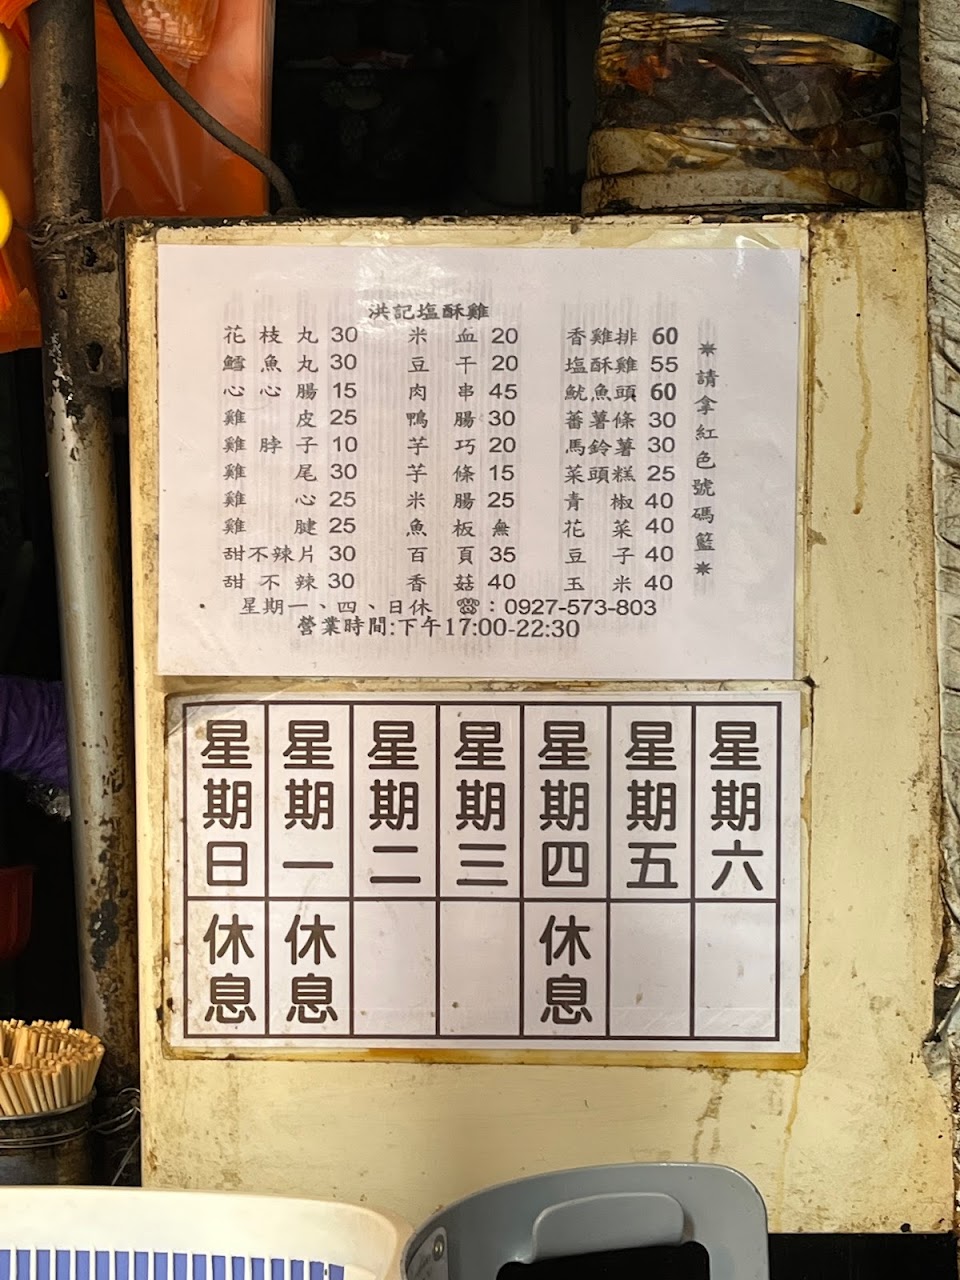 洪記塩酥雞
花枝丸 30 米血 20 香雞排 60
鱈魚丸 30 豆干 20 塩酥雞 55
心心腸 15 肉串 45 魷魚頭 60
雞皮 25 鴨腸 30 蕃薯條 30
雞脖子 10 芋巧 20 馬鈴薯 30
雞尾 30 芋條 15 菜頭糕 25
雞心 25 米腸 25 青椒 40
雞腱 25 魚板 無 花菜 40
甜不辣片 30 百頁 35 豆子 40
甜不辣 30 香菇 40 玉米 40
✷請拿紅色號碼籃✷
星期一、四、日休 ☎：0927-573-803
營業時間:下午17:00-22:30
星期日 星期一 星期二 星期三 星期四 星期五 星期六
休息 休息 休息